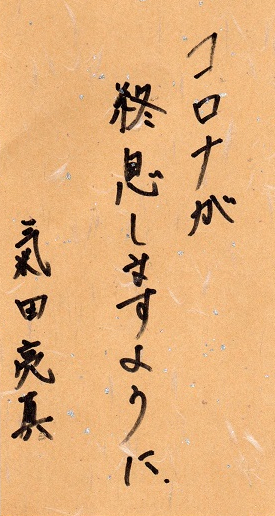 コロナが
終息しますように.
氣田亮真